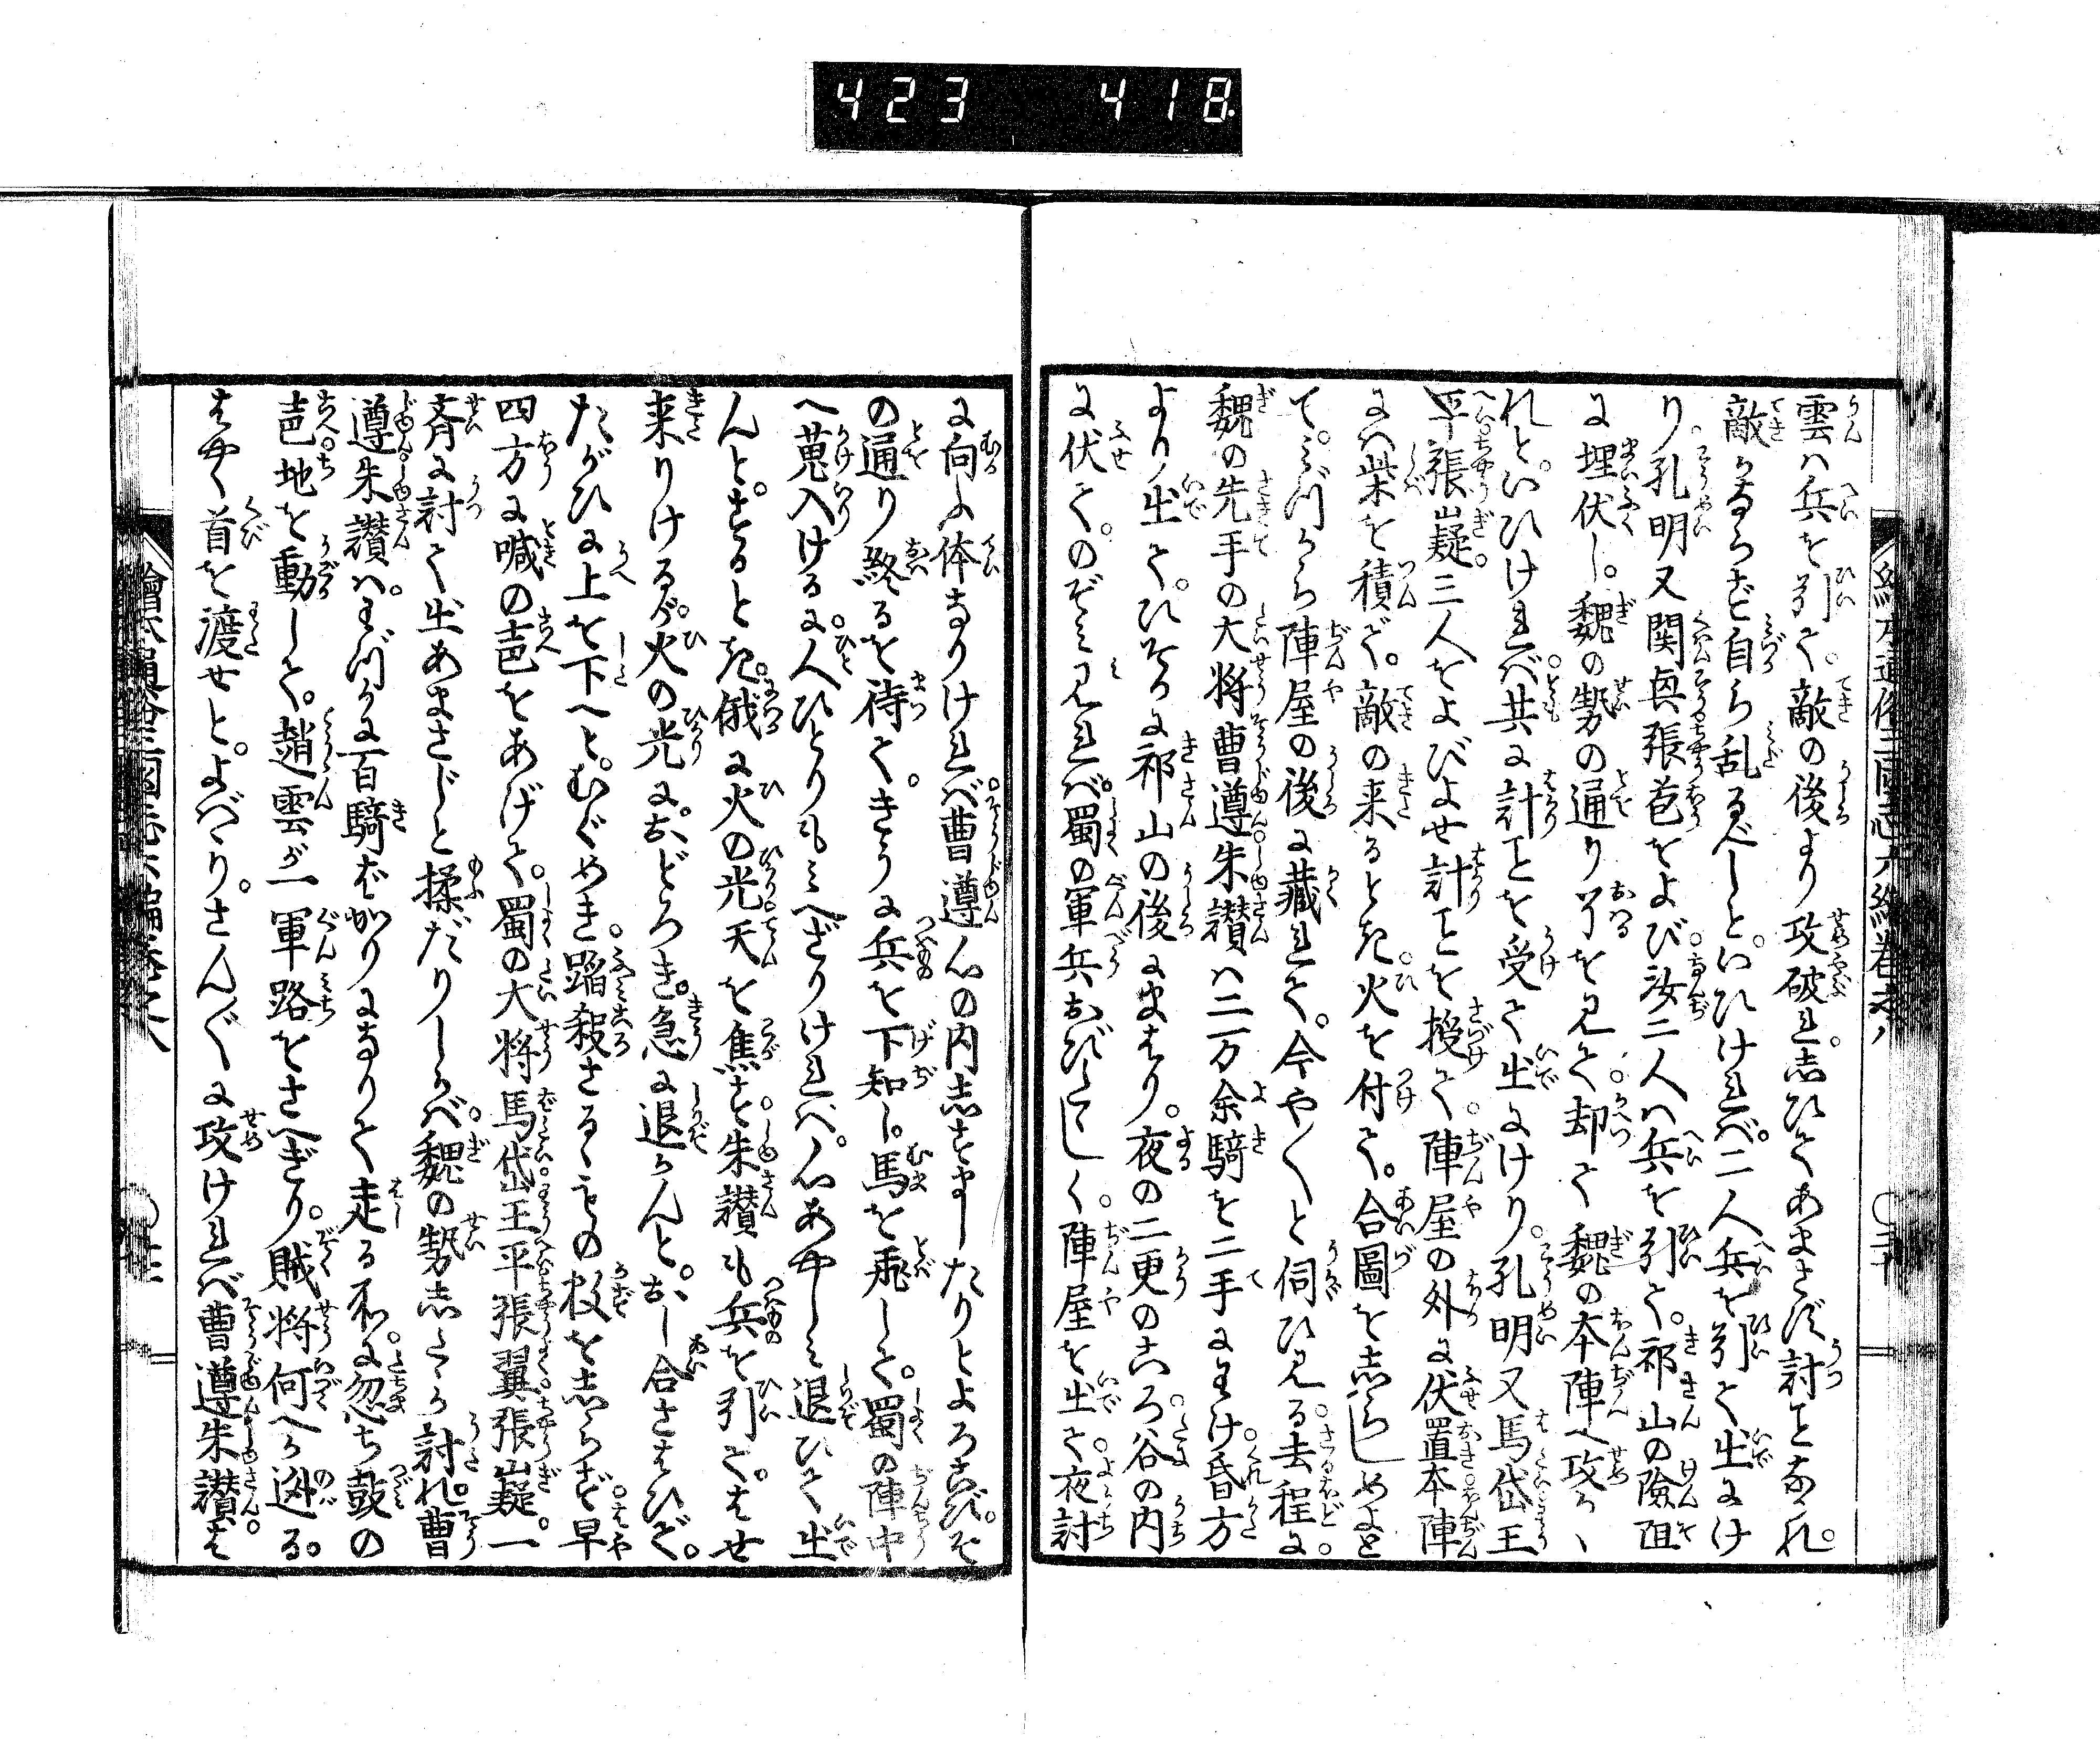 423 418
雲ハ兵を引て。敵の後より攻破れ。志ひてあまさず討ことなかれ。
敵かならず自ら乱るべしと。いひければ。二人兵を引て出にけ
り。孔明又関興張苞をよび。汝二人ハ兵を引て。祁山の険阻
に埋伏し。魏の勢の通り了るを見て。却て魏の本陣へ攻かゝ
れと。いひければ。共に計ことを受て出にけり。孔明又馬岱王
平張翼張嶷。三人をよびよせ計ことを授て。陣屋の外に伏置本陣
にハ柴を積で。敵の来るとき。火を付て。合圖を志らしめよと
て。ミづから陣屋の後に藏れて。今や〱と伺ひ見る。去程に。
魏の先手の大将曹遵朱讃ハ二万余騎を二手にわけ。昏方
より出て。ひそかに祁山の後にまはり。夜の二更のころ。谷の内
に伏て。のぞミ見れバ。蜀の軍兵おびたゝしく。陣屋を出て。夜討
に向ふ体なりけれバ。曹遵心の内志すましたりとよろこび。そ
の通り終るを待て。きうに兵を下知し。馬を飛して。蜀の陣中
へ蒐入けるに。人ひとりもミへざりけれバ。心あやしミ退ひて出
んと。するとき。俄に火の光天を焦す。朱讃も兵を引て。はせ
来りけるが。火の光に。おどろき。急に退かんと。おし合さはひで。
たがひに上を下へと。むぐめき。蹈殺さるゝもの数を志らず。早
四方に喊の声をあげて。蜀の大将馬岱王平張翼張嶷。一
斉に討て出あまさじと揉だりしかバ。魏の勢志たゝか討れ。曹
遵朱讃ハ。わづかに百騎ばかりになりて走る所に。忽ち鼓の
声。地を動して。趙雲が一軍路をさへぎり。賊将何へか遁る。
はやく首を渡せと。よばゝり。さんぐに攻けれバ曹遵朱讃は